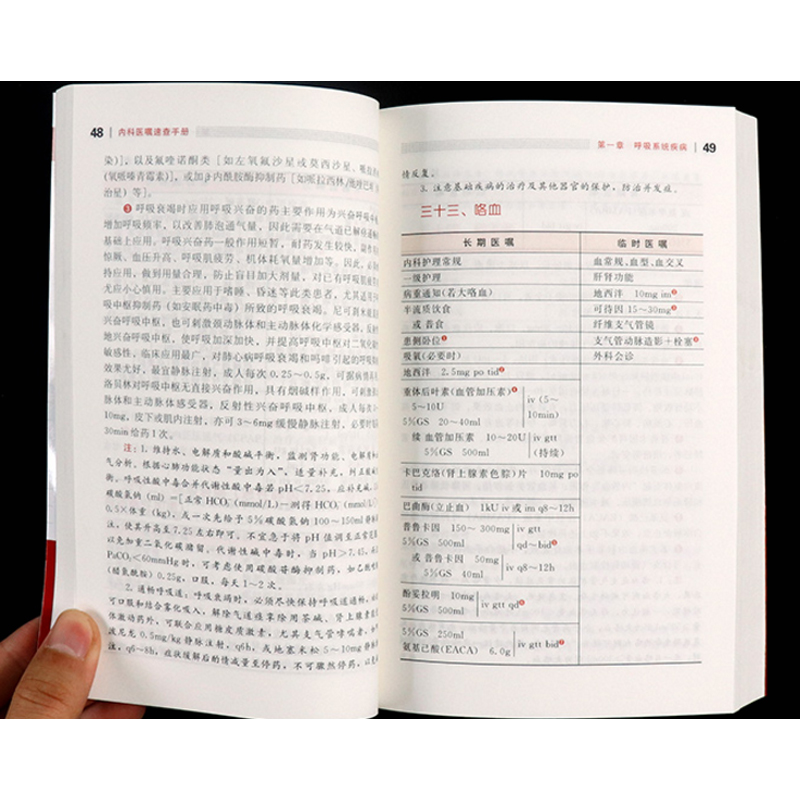 48 内科医嘱速查手册
染)]，以及氟喹诺酮类［如左氧氟沙星或莫西沙星、
(氧哌嗪青霉素)]，或加β内酰胺酶抑制药［如哌拉西林/
治星）等］。
❸ 呼吸衰竭时应用呼吸兴奋的药主要作用为兴奋呼吸中枢，
增加呼吸频率，以改善肺泡通气量，因此需要在气道已解
基础上应用。呼吸兴奋药一般作用短暂，耐药发生较快，
惊厥、血压升高、呼吸肌疲劳、机体耗氧量增加等。因此，
持应用，做到用量合理，防止盲目加大剂量，对已有呼吸肌
无应小心慎用。主要应用于嗜睡、昏迷等此类患者，尤其适用于
吸中枢抑制药（如安眠药中毒）所致的呼吸衰竭。尼可刹米
兴奋呼吸中枢，也可刺激颈动脉体和主动脉体化学感受器，反射
地兴奋呼吸中枢，使呼吸加深加快，并提高呼吸中枢对二氧化碳
敏感性。临床应用最广，对肺心病呼吸衰竭和吗啡引起的呼吸
效果尤好，最宜静脉滴注，成人每次0.25～0.5g，可据病情
洛贝林对呼吸中枢无直接兴奋作用，具有烟碱样作用，可刺激
脉体和主动脉体感受器，反射性兴奋呼吸中枢，成人每次3～
10mg，皮下或肌内注射，亦可3～6mg缓慢静脉注射，必要时
30min给药1次。
注：1. 维持水、电解质和酸碱平衡，监测肾功能、电解质和
气分析，根据心肺功能状态“量出为入”，适量补充，纠正
衡。呼吸性酸中毒合并代谢性酸中毒若pH<7.25，应补充
碳酸氢钠（ml）=[正常HCO₃⁻（mmol/L）－测得HCO₃⁻（mmol/L）]
0.5×体重（kg），或一次先给予5%碳酸氢钠100～150ml静脉
注，使其升高至7.25左右即可，不宜急于将pH值调至正常
以免加重二氧化碳潴留。代谢性碱中毒时，当pH>7.45，
PaCO₂<60mmHg时，可考虑使用碳酸酐酶抑制药，如乙酰唑胺
（醋氮酰胺）0.25g，口服，每天1～2次。
2. 通畅呼吸道：呼吸衰竭时，必须尽快保持呼吸道通畅，
可口服和结合雾化吸入，解除气道痉挛除用茶碱、肾上腺素
体激动药外，可联合应用糖皮质激素，尤其支气管哮喘者，
泼尼龙0.5mg/kg静脉注射，q6h，或地塞米松5～10mg静脉
注，q6～8h，症状缓解后酌情减量至停药，不可骤然停药，以免
第一章 呼吸系统疾病 49
情反复。
3. 注意基础疾病的治疗及其他器官的保护，防治并发症。
三十三、咯血
长期医嘱 临时医嘱
内科护理常规 血常规、血型、血交叉
一级护理 肝肾功能
病重通知（若大咯血） 地西泮 10mg im❷
半流质饮食 可待因 15～30mg❸
或 普食 纤维支气管镜
患侧卧位❶ 支气管动脉造影＋栓塞❽
吸氧（必要时） 外科会诊
地西泮 2.5mg po tid❷
垂体后叶素（血管加压素）❹ iv（5～
5～10U 10min）
5%GS 20～40ml
续 血管加压素 10～20U iv gtt
5%GS 500ml （持续）
卡巴克络（肾上腺素色腙）片 10mg po
tid
巴曲酶（立止血） 1kU iv 或 im q8～12h
普鲁卡因 150～300mg iv gtt
5%GS 500ml qd～bid❺
或 普鲁卡因 50mg iv q8～12h
5%GS 40ml
酚妥拉明 10mg iv gtt qd❻
5%GS 500ml
5%GS 250ml iv gtt bid❼
氨基己酸（EACA） 6.0g